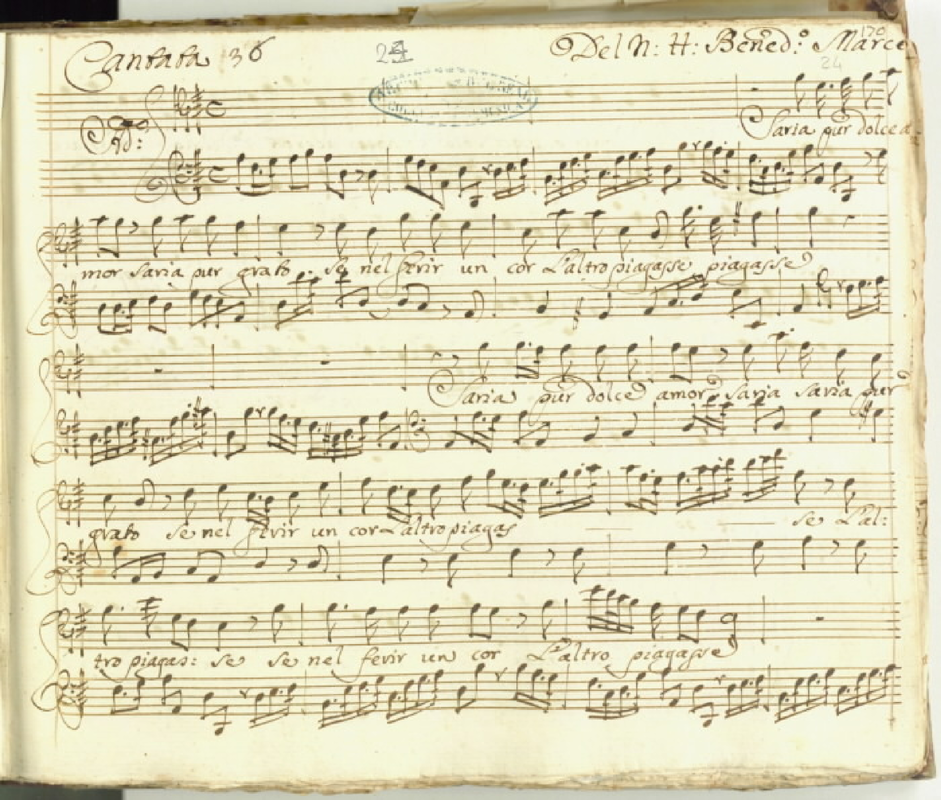 Cantata 36 24 Del N: H: Bened:º Marce
170
24
Ad:
Saria pur dolce a
mor saria pur grato. se nel ferir un cor L'altro piagasse piagasse
Saria pur dolce amor saria saria pur
grato se nel ferir un cor L'altro piagas se L'al:
tro piagas: se se nel ferir un cor L'altro piagasse